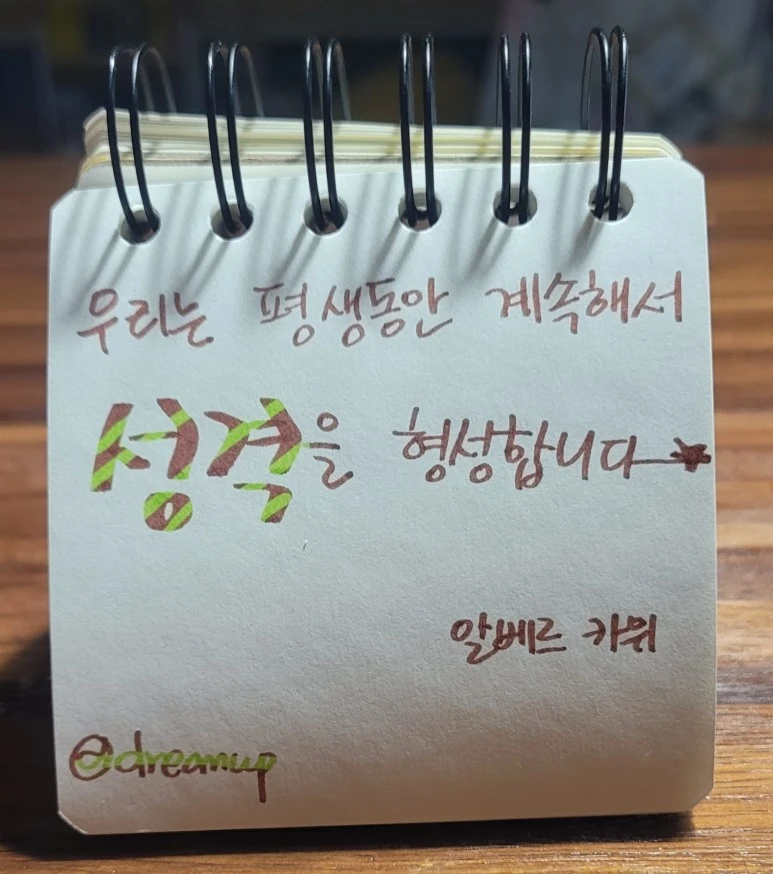 우리는 평생동안 계속해서
성격을 형성합니다
알베르 카뮈
@dreamup